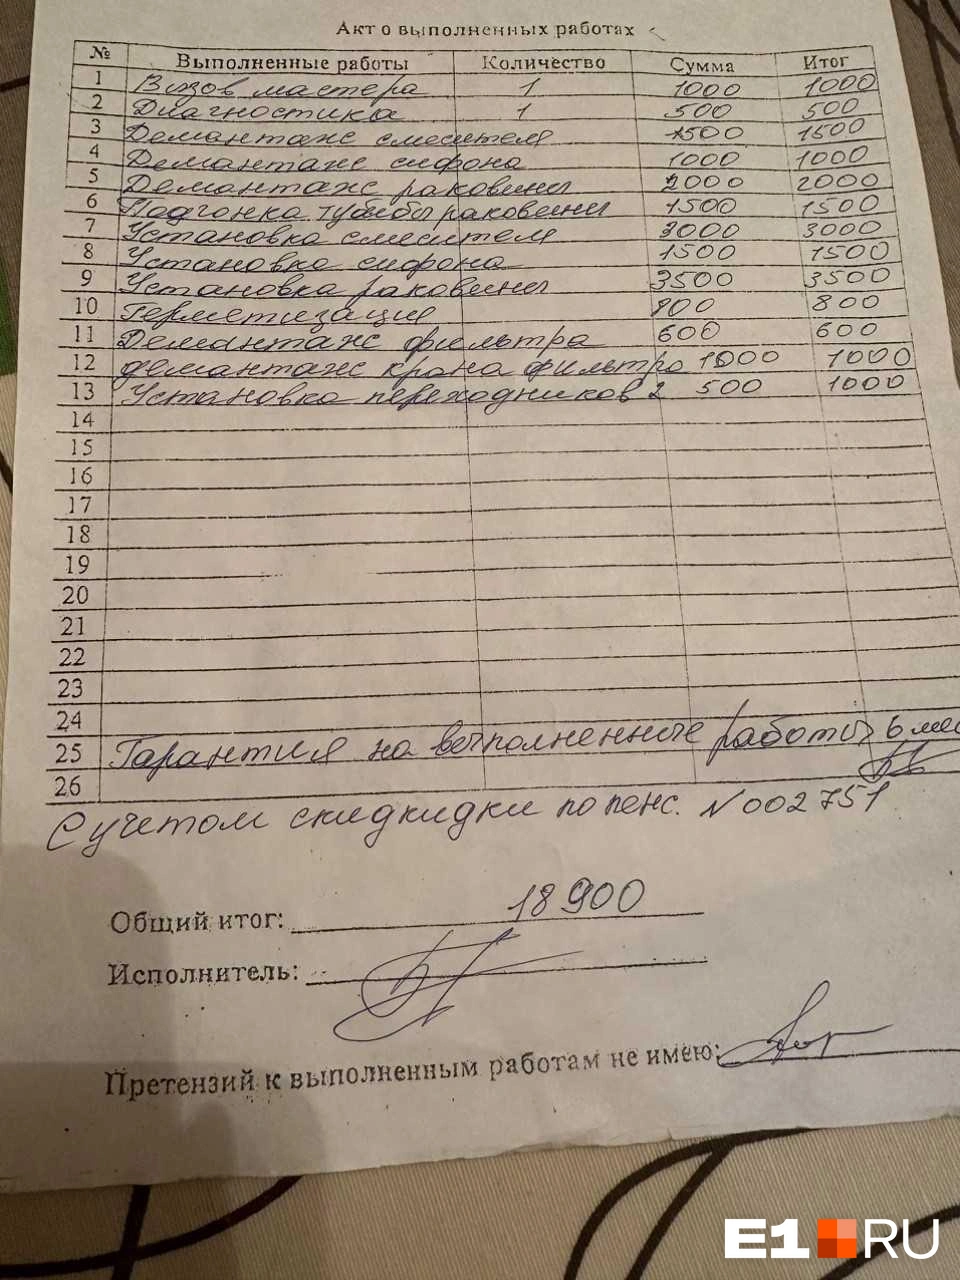 Акт о выполненных работах
№ Выполненные работы Количество Сумма Итог
1 Вызов мастера 1 1000 1000
2 Диагностика 1 500 500
3 Демантаж смесителя 1500 1500
4 Демантаж сифона 1000 1000
5 Демантаж раковины 2000 2000
6 Подгонка тумбы раковины 1500 1500
7 Установка смесителя 3000 3000
8 Установка сифона 1500 1500
9 Установка раковины 3500 3500
10 Герметизация 800 800
11 Демантаж фильтра 600 600
12 демантаж крана фильтра 1000 1000
13 Установка переходников 2 500 1000
14
15
16
17
18
19
20
21
22
23
24
25 Гарантия на выполненные работы 6 мес
26
С учетом скидкидки по пенс. N 002751
Общий итог: 18 900
Исполнитель:
Претензий к выполненным работам не имею:
E1 RU